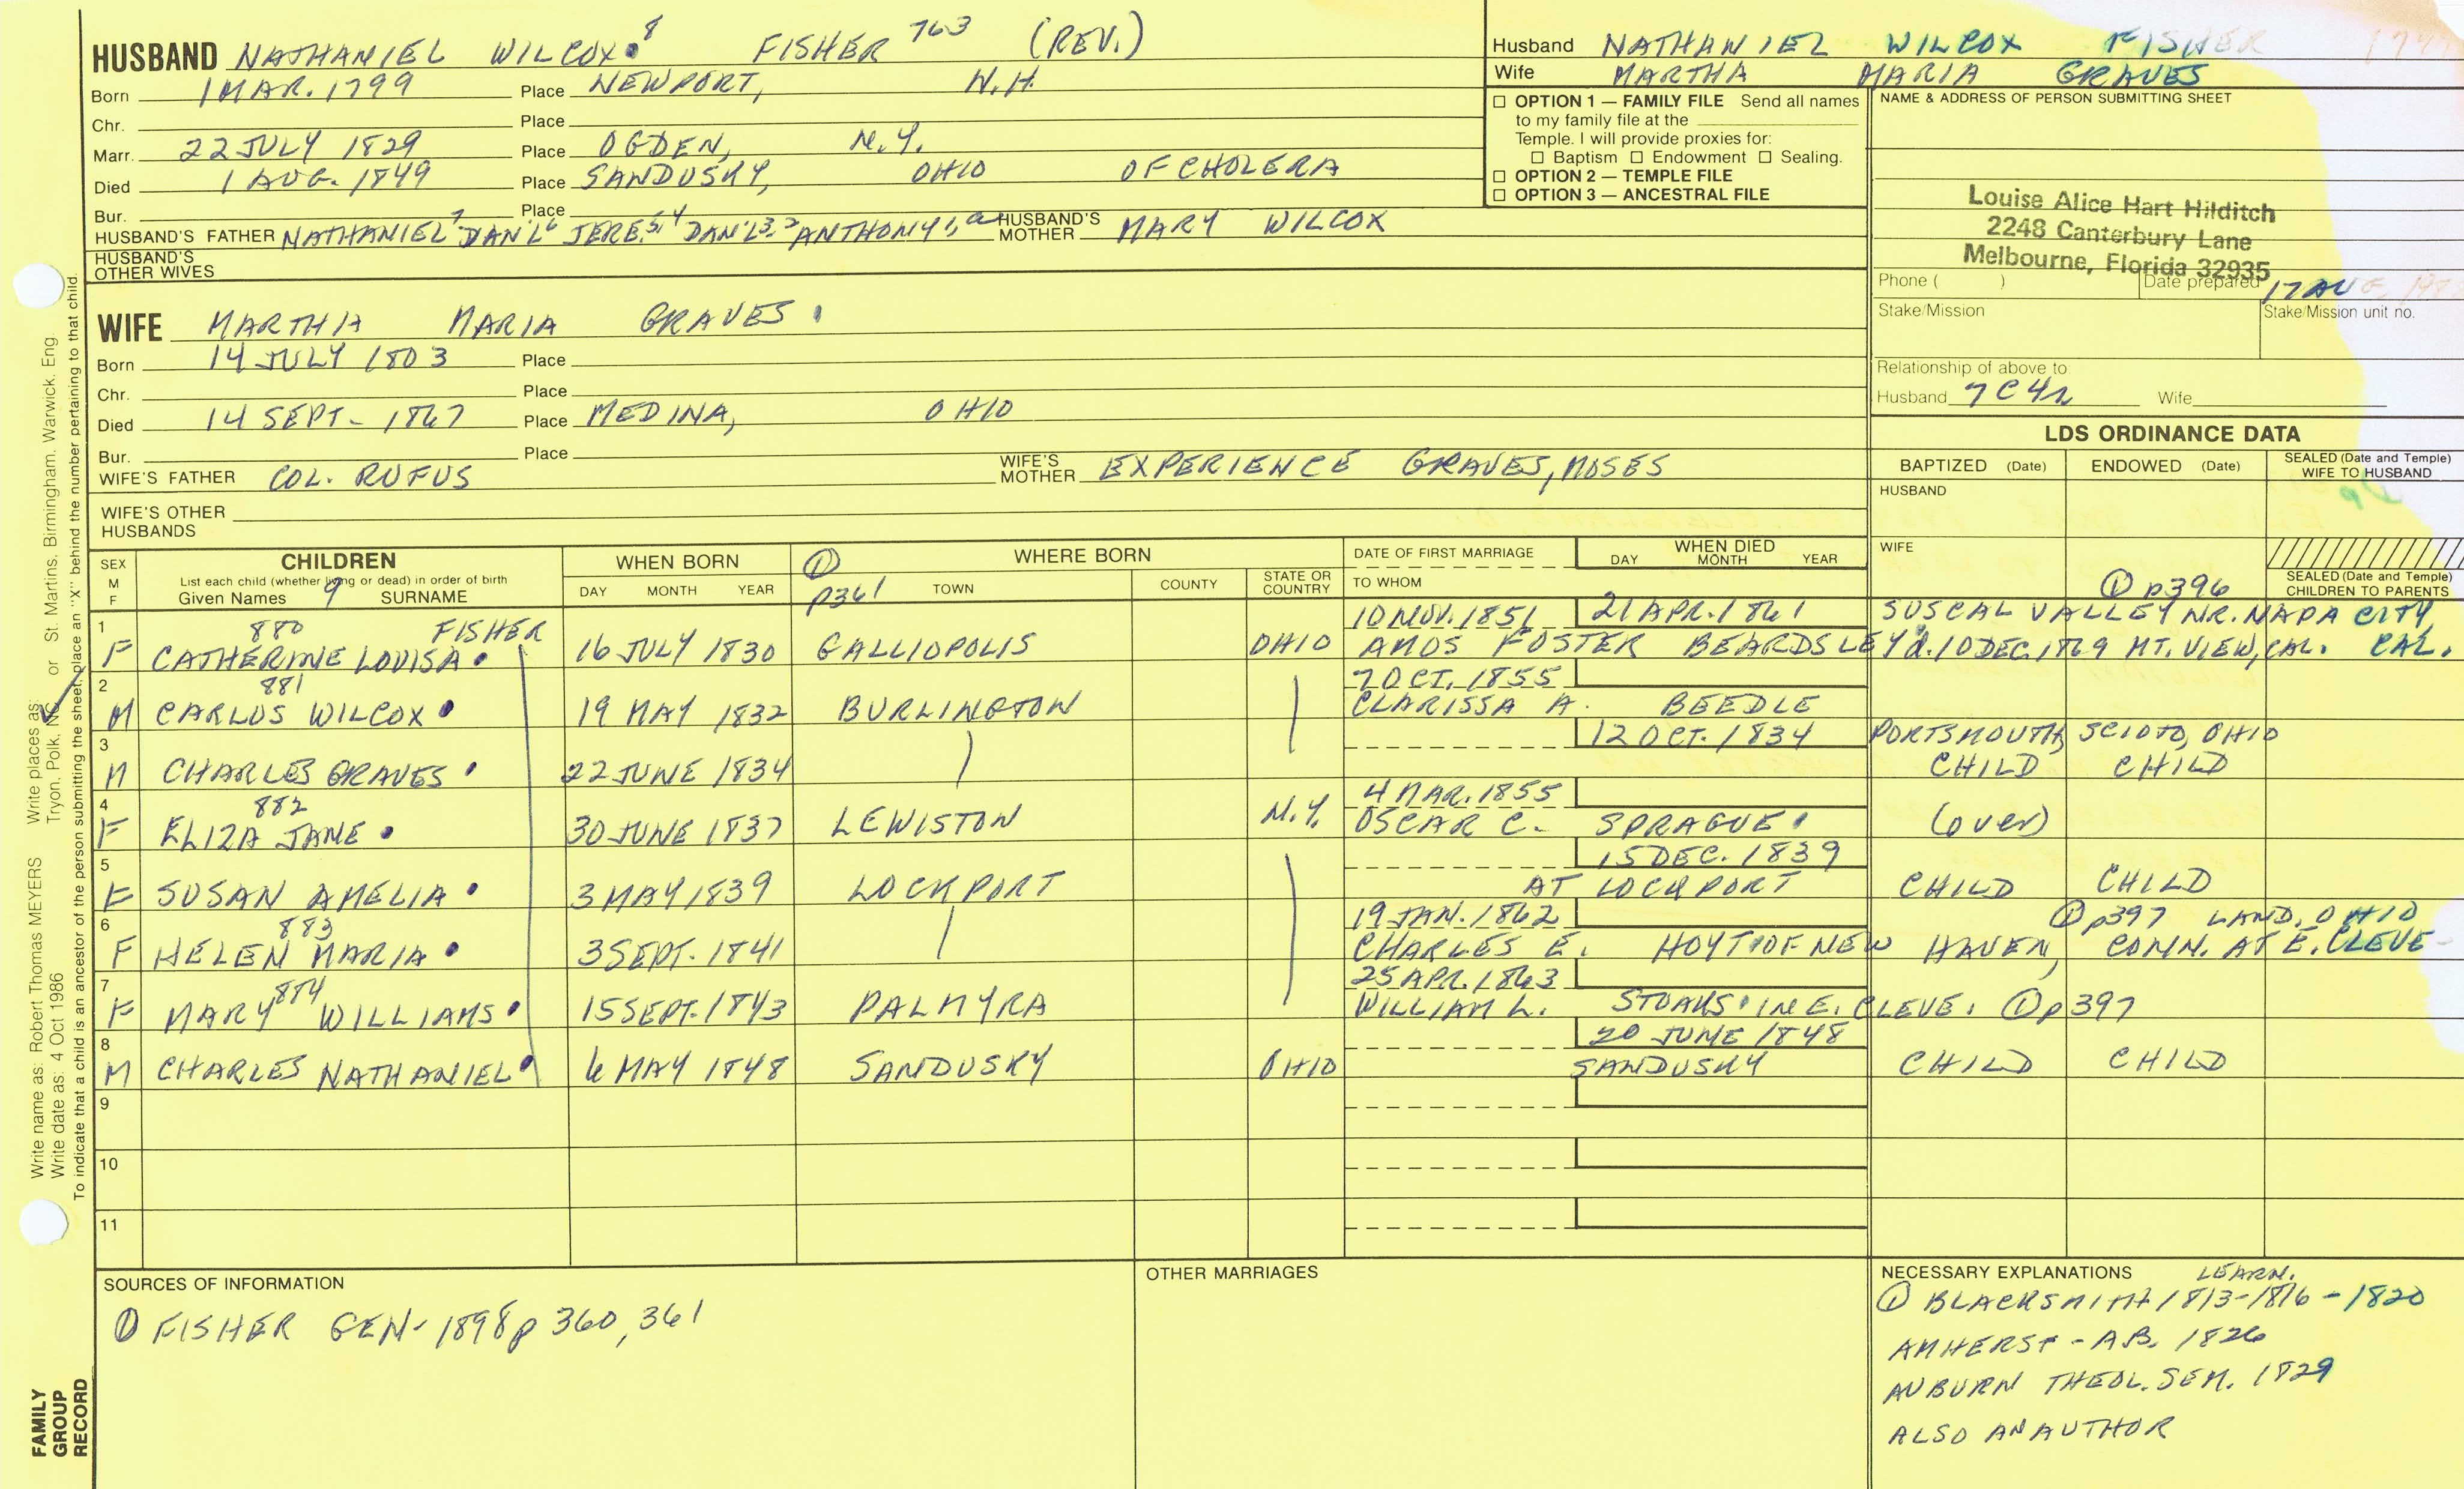 HUSBAND NATHANIEL WILCOX 8 FISHER 763 (REV.)
Born 1 MAR. 1799 Place NEWPORT, N.H.
Chr. Place
Marr. 22 JULY 1829 Place OGDEN, N.Y.
Died 1 AUG. 1849 Place SANDUSKY, OHIO OF CHOLERA
Bur. Place
HUSBAND'S FATHER NATHANIEL7 DAN'L6 JERE.5,4 DAN'L3,2 ANTHONY1, a HUSBAND'S MOTHER MARY WILCOX
HUSBAND'S OTHER WIVES
WIFE MARTHA MARIA GRAVES
Born 14 JULY 1803 Place
Chr. Place
Died 14 SEPT- 1867 Place MEDINA, OHIO
Bur. Place
WIFE'S FATHER COL. RUFUS WIFE'S MOTHER EXPERIENCE GRAVES, MOSES
WIFE'S OTHER HUSBANDS
Husband NATHANIEL WILCOX FISHER
Wife MARTHA MARIA GRAVES
☐ OPTION 1 — FAMILY FILE Send all names
to my family file at the
Temple. I will provide proxies for:
☐ Baptism ☐ Endowment ☐ Sealing.
☐ OPTION 2 — TEMPLE FILE
☐ OPTION 3 — ANCESTRAL FILE
NAME & ADDRESS OF PERSON SUBMITTING SHEET
Louise Alice Hart Hilditch
2248 Canterbury Lane
Melbourne, Florida 32935
Phone ( ) Date prepared 17 AUG
Stake/Mission Stake/Mission unit no.
Relationship of above to
Husband 7C4R Wife
LDS ORDINANCE DATA
BAPTIZED (Date) ENDOWED (Date) SEALED (Date and Temple) WIFE TO HUSBAND
HUSBAND
WIFE
① p396 SEALED (Date and Temple) CHILDREN TO PARENTS
SEX M F CHILDREN
List each child (whether living or dead) in order of birth
Given Names 9 SURNAME
WHEN BORN DAY MONTH YEAR
① p361 WHERE BORN TOWN COUNTY STATE OR COUNTRY
DATE OF FIRST MARRIAGE TO WHOM
WHEN DIED DAY MONTH YEAR
1 880 FISHER 10 NOV. 1851 21 APR. 1861 SUSCAL VALLEY NR. NAPA CITY,
F CATHERINE LOUISA 16 JULY 1830 GALLIOPOLIS OHIO AMOS FOSTER BEARDSLEY d. 10 DEC. 1869 MT. VIEW, CAL. CAL.
2 881 7 OCT. 1855
M CARLOS WILCOX 19 MAY 1832 BURLINGTON CLARISSA A. BEEDLE
3 12 OCT. 1834 PORTSMOUTH, SCIOTO, OHIO
M CHARLES GRAVES 22 JUNE 1834 CHILD CHILD
4 882 4 MAR. 1855
F ELIZA JANE 30 JUNE 1837 LEWISTON N.Y. OSCAR C. SPRAGUE (over)
5 15 DEC. 1839
F SUSAN AMELIA 3 MAY 1839 LOCKPORT AT LOCKPORT CHILD CHILD
6 883 19 JAN. 1862 ① p397 LAND, OHIO
F HELEN MARIA 3 SEPT. 1841 CHARLES E. HOYT OF NEW HAVEN, CONN. AT E. CLEVE-
7 884 25 APR. 1863
F MARY WILLIAMS 15 SEPT. 1843 PALMYRA WILLIAM L. STOAKS IN E. CLEVE. ① p397
8 20 JUNE 1848
M CHARLES NATHANIEL 6 MAY 1848 SANDUSKY OHIO SANDUSKY CHILD CHILD
9
10
11
SOURCES OF INFORMATION
① FISHER GEN- 1898 p 360, 361
OTHER MARRIAGES
NECESSARY EXPLANATIONS LEARN.
① BLACKSMITH 1813-1816 - 1820
AMHERST - A.B. 1826
AUBURN THEOL. SEM. 1829
ALSO AN AUTHOR
Write name as: Robert Thomas MEYERS Write places as: Tryon, Polk, NC or St. Martins, Birmingham, Warwick, Eng.
Write date as: 4 Oct 1986
To indicate that a child is an ancestor of the person submitting the sheet, place an "X" behind the number pertaining to that child.
FAMILY
GROUP
RECORD